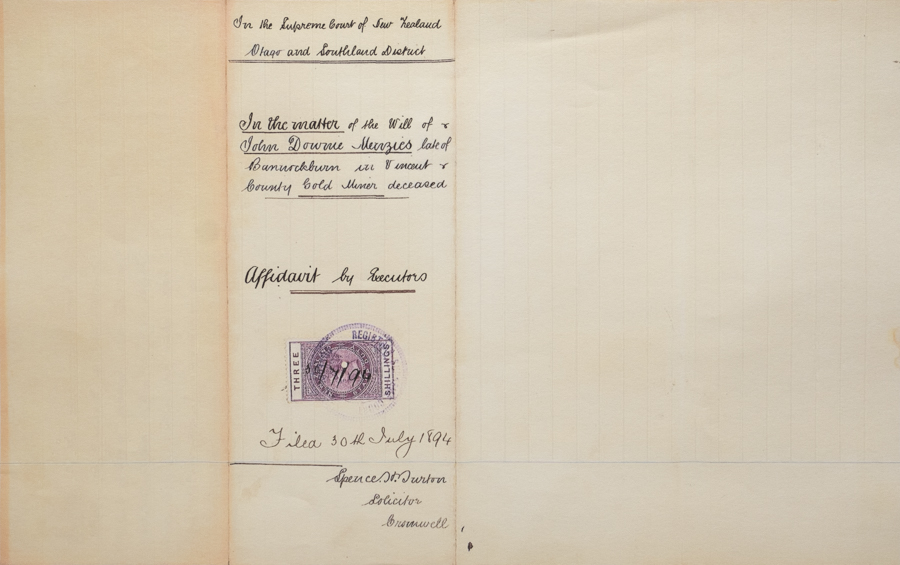 In the Supreme Court of New Zealand
Otago and Southland District
In the matter of the Will of
John Downie Menzies late of
Bannockburn in Vincent
County Gold Miner deceased
Affidavit by Executors
REGIST
THREE
SHILLINGS
Filed 30th July 1894
Spence H. Turton
Solicitor
Cromwell